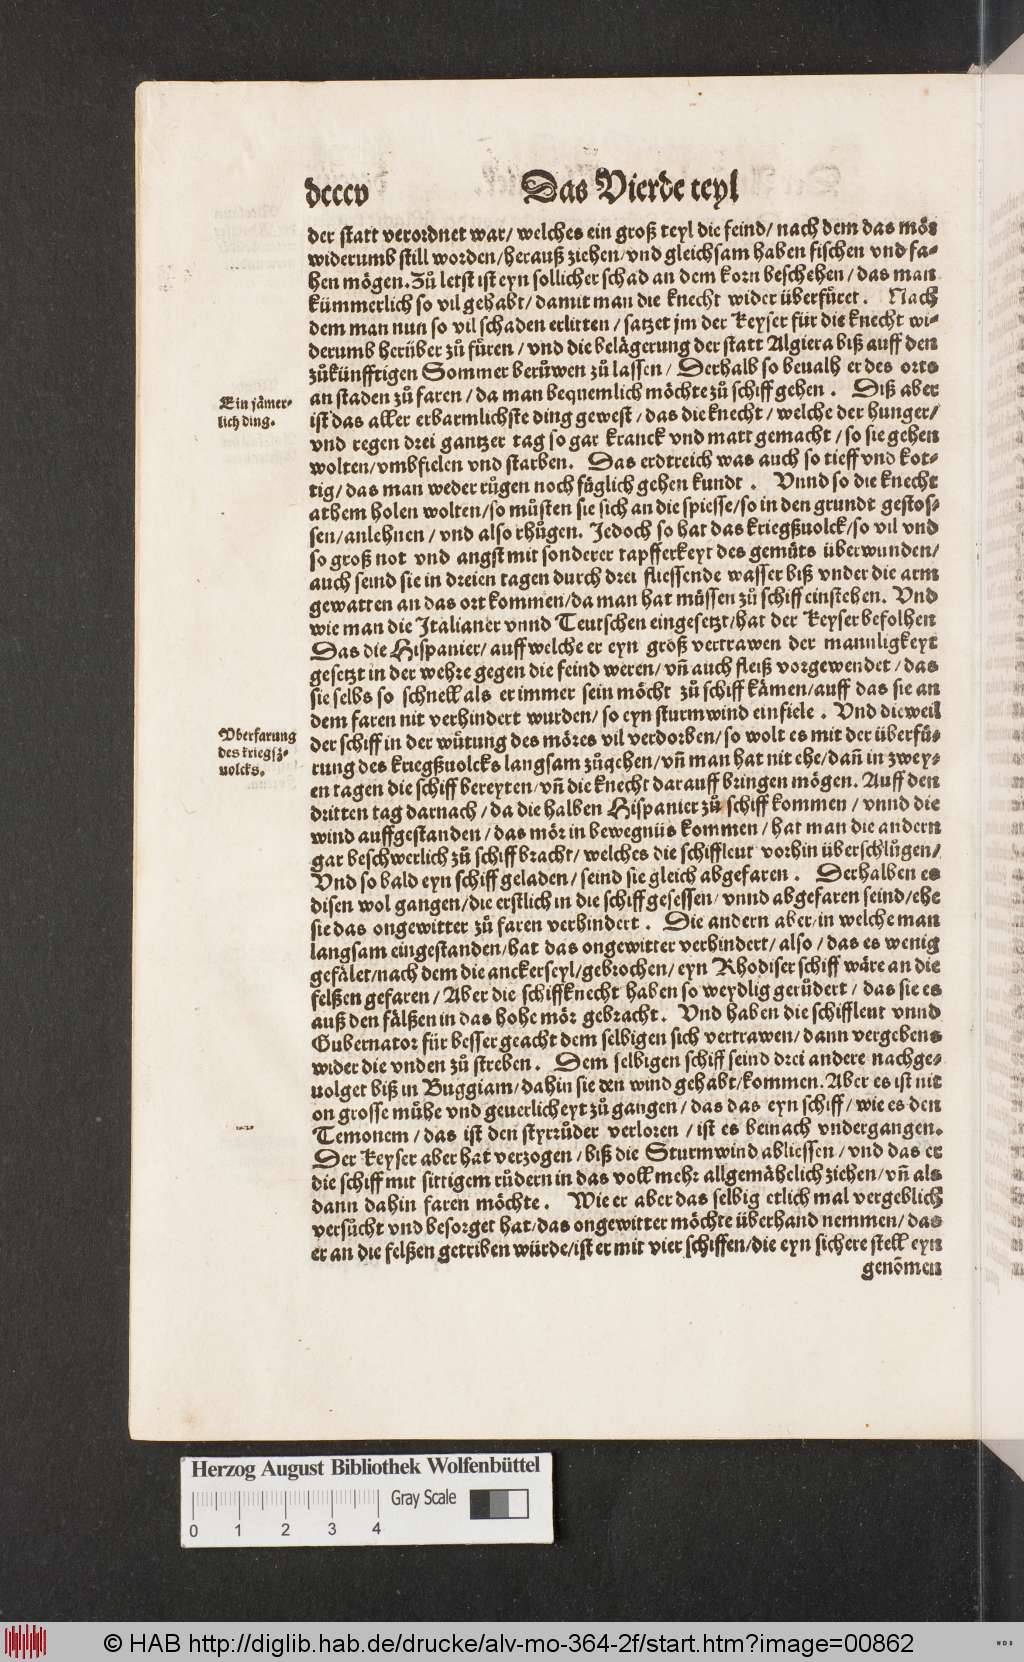 dcccv
Das Vierde teyl
der statt verordnet war/ welches ein groß teyl die feind/ nach dem das mör
widerumb still worden/ herauß ziehen/ vnd gleichsam haben fischen vnd fa⸗
hen mögen. Zů letst ist eyn sollicher schad an dem korn beschehen/ das man
kümmerlich so vil gehabt/ damit man die knecht wider überfůret. Nach
dem man nun so vil schaden erlitten/ satzet jm der Keyser für die knecht wi⸗
derumb herüber zů fůren/ vnd die belägerung der statt Algiera biß auff den
zůkünfftigen Sommer berůwen zů lassen/ Derhalb so beualh er des orts
an staden zů faren/ da man bequemlich möchte zů schiff gehen. Diß aber
ist das aller erbarmlichste ding gewest/ das die knecht/ welche der hunger/
vnd regen drei gantzer tag so gar kranck vnd matt gemacht/ so sie gehen
wolten/ vmbfielen vnd starben. Das erdtreich was auch so tieff vnd kot⸗
tig/ das man weder růgen noch fäglich gehen kundt. Vnnd so die knecht
athem holen wolten/ so můsten sie sich an die spiesse/ so in den grundt gestos⸗
sen/ anlehnen/ vnd also rhůgen. Jedoch so hat das kriegßuolck/ so vil vnd
so groß not vnd angst mit sonderer tapfferkeyt des gemůts überwunden/
auch seind sie in dreien tagen durch drei fliessende wasser biß vnder die arm
gewatten an das ort kommen/ da man hat můssen zů schiff einsteben. Vnd
wie man die Italianer vnnd Teutschen eingesetzt/ hat der Keyser befolhen
Das die Hispanier/ auff welche er eyn groß vertrawen der mannligkeyt
gesetzt in der wehre gegen die feind weren/ vñ auch fleiß vorgewendet/ das
sie selbs so schnell als er immer sein möcht zů schiff kämen/ auff das sie an
dem faren nit verhindert wurden/ so eyn sturmwind einfiele. Vnd dieweil
der schiff in der wůtung des möres vil verdorben/ so wolt es mit der überfů⸗
rung des kriegßuolcks langsam zůgehen/ vñ man hat nit ehe/ dañ in zwey⸗
en tagen die schiff bereyten/ vñ die knecht darauff bringen mögen. Auff den
dritten tag darnach/ da die halben Hispanier zů schiff kommen/ vnnd die
wind auffgestanden/ das mör in bewegnüs kommen/ hat man die andern
gar beschwerlich zů schiff bracht/ welches die schiffleut vorhin überschlůgen/
Vnd so bald eyn schiff geladen/ seind sie gleich abgefaren. Derhalben es
disen wol gangen/ die erstlich in die schiff gesessen/ vnnd abgefaren seind/ ehe
sie das ongewitter zů faren verhindert. Die andern aber/ in welche man
langsam eingestanden/ hat das ongewitter verhindert/ also/ das es wenig
gefälet/ nach dem die anckerseyl/ gebrochen/ eyn Rhodiser schiff wäre an die
felßen gefaren/ Aber die schiffknecht haben so weydlig gerůdert/ das sie es
auß den fälßen in das hohe mör gebracht. Vnd haben die schiffleut vnnd
Gubernator für besser geacht dem selbigen sich vertrawen/ dann vergebens
wider die vnden zů streben. Dem selbigen schiff seind drei andere nachge⸗
uolget biß in Buggiam/ dahin sie den wind gehabt/ kommen. Aber es ist nit
on grosse můhe vnd geuerlicheyt zů gangen/ das das eyn schiff/ wie es den
Temonem/ das ist den styrrůder verloren/ ist es beinach vndergangen.
Der Keyser aber hat verzogen/ biß die Sturmwind abliessen/ vnd das er
die schiff mit sittigem růdern in das voll mehr allgemåhelich ziehen/ vñ als
dann dahin faren möchte. Wie er aber das selbig etlich mal vergeblich
versůcht vnd besorget hat/ das ongewitter möchte überhand nemmen/ das
er an die felßen getriben würde/ ist er mit vier schiffen/ die eyn sichere stell eyn
genõmen
Ein jämer⸗
lich ding.
Vberfarung
des kriegsz⸗
uolcks.
Herzog August Bibliothek Wolfenbüttel
Gray Scale
0 1 2 3 4
© HAB http://diglib.hab.de/drucke/alv-mo-364-2f/start.htm?image=00862